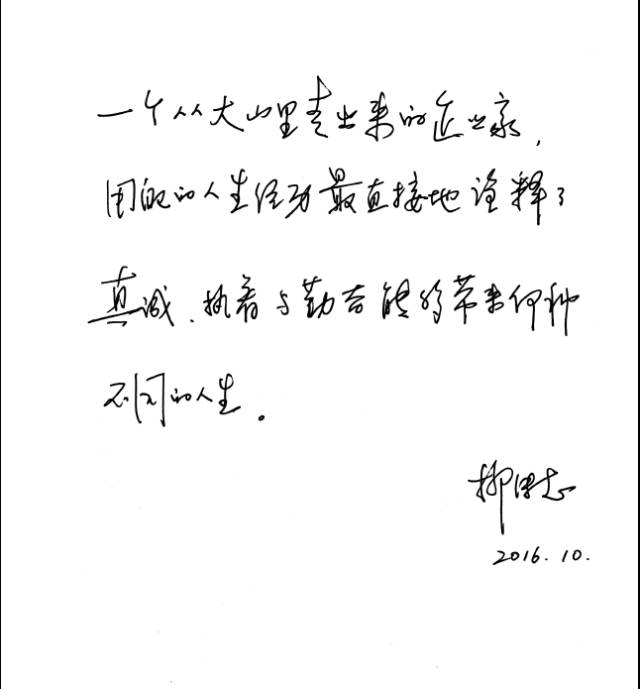 一个从大山里走出来的企业家,
用他的人生经历最直接地诠释了
真诚、执着与勤奋能够带来何种
不同的人生。
柳传志
2016.10.